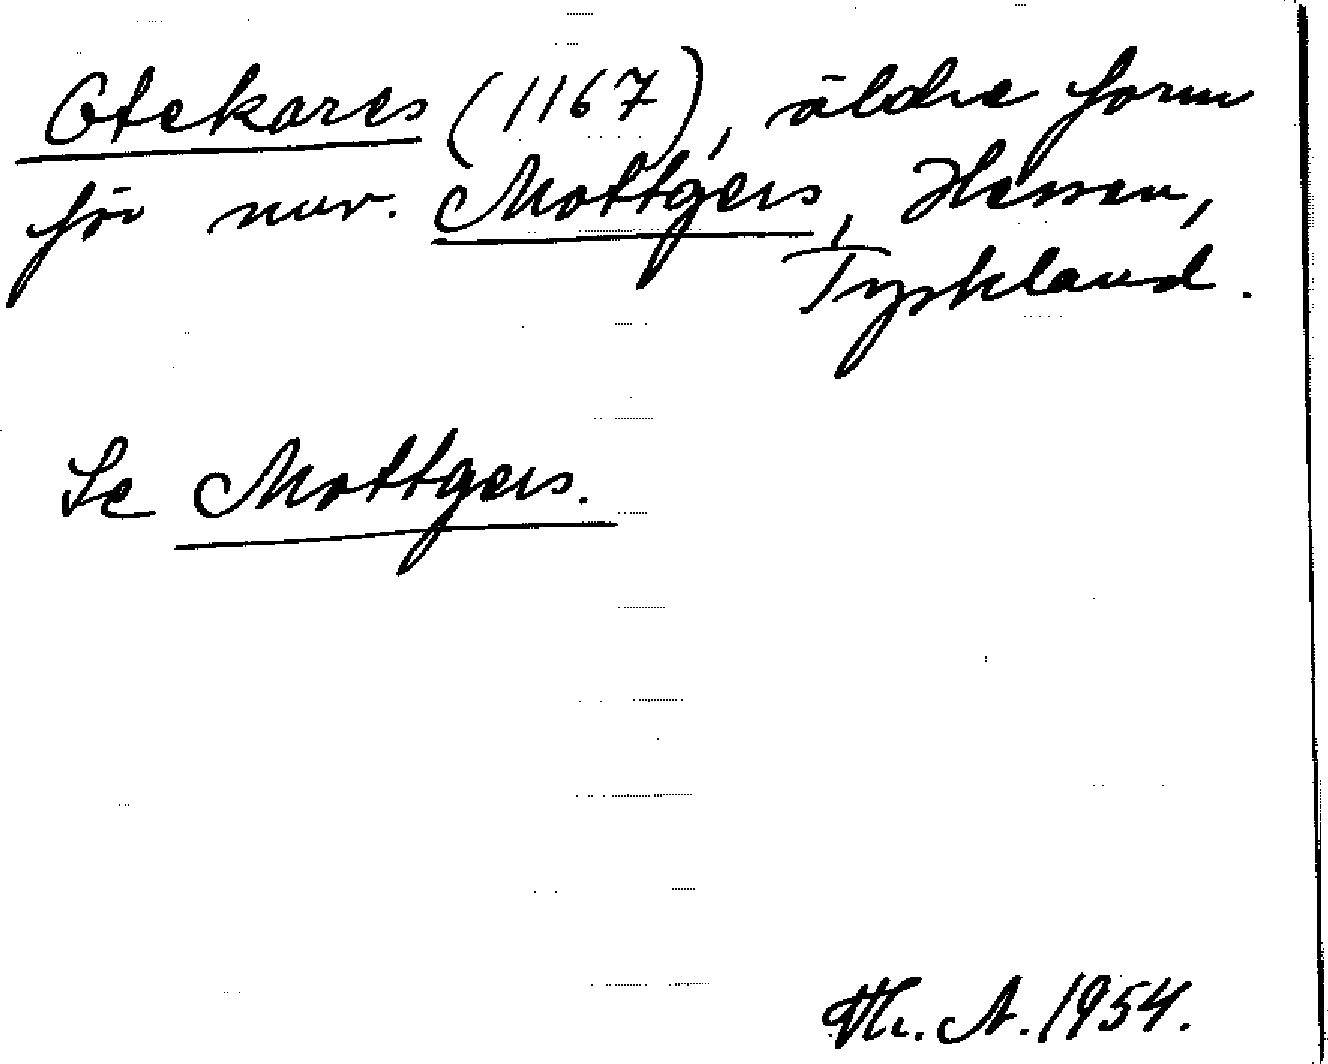 Otekares (1167), äldre form
för nuv. Mottgers, Hessen,
Tyskland.
Se Mottgers.
Th. A. 1954.